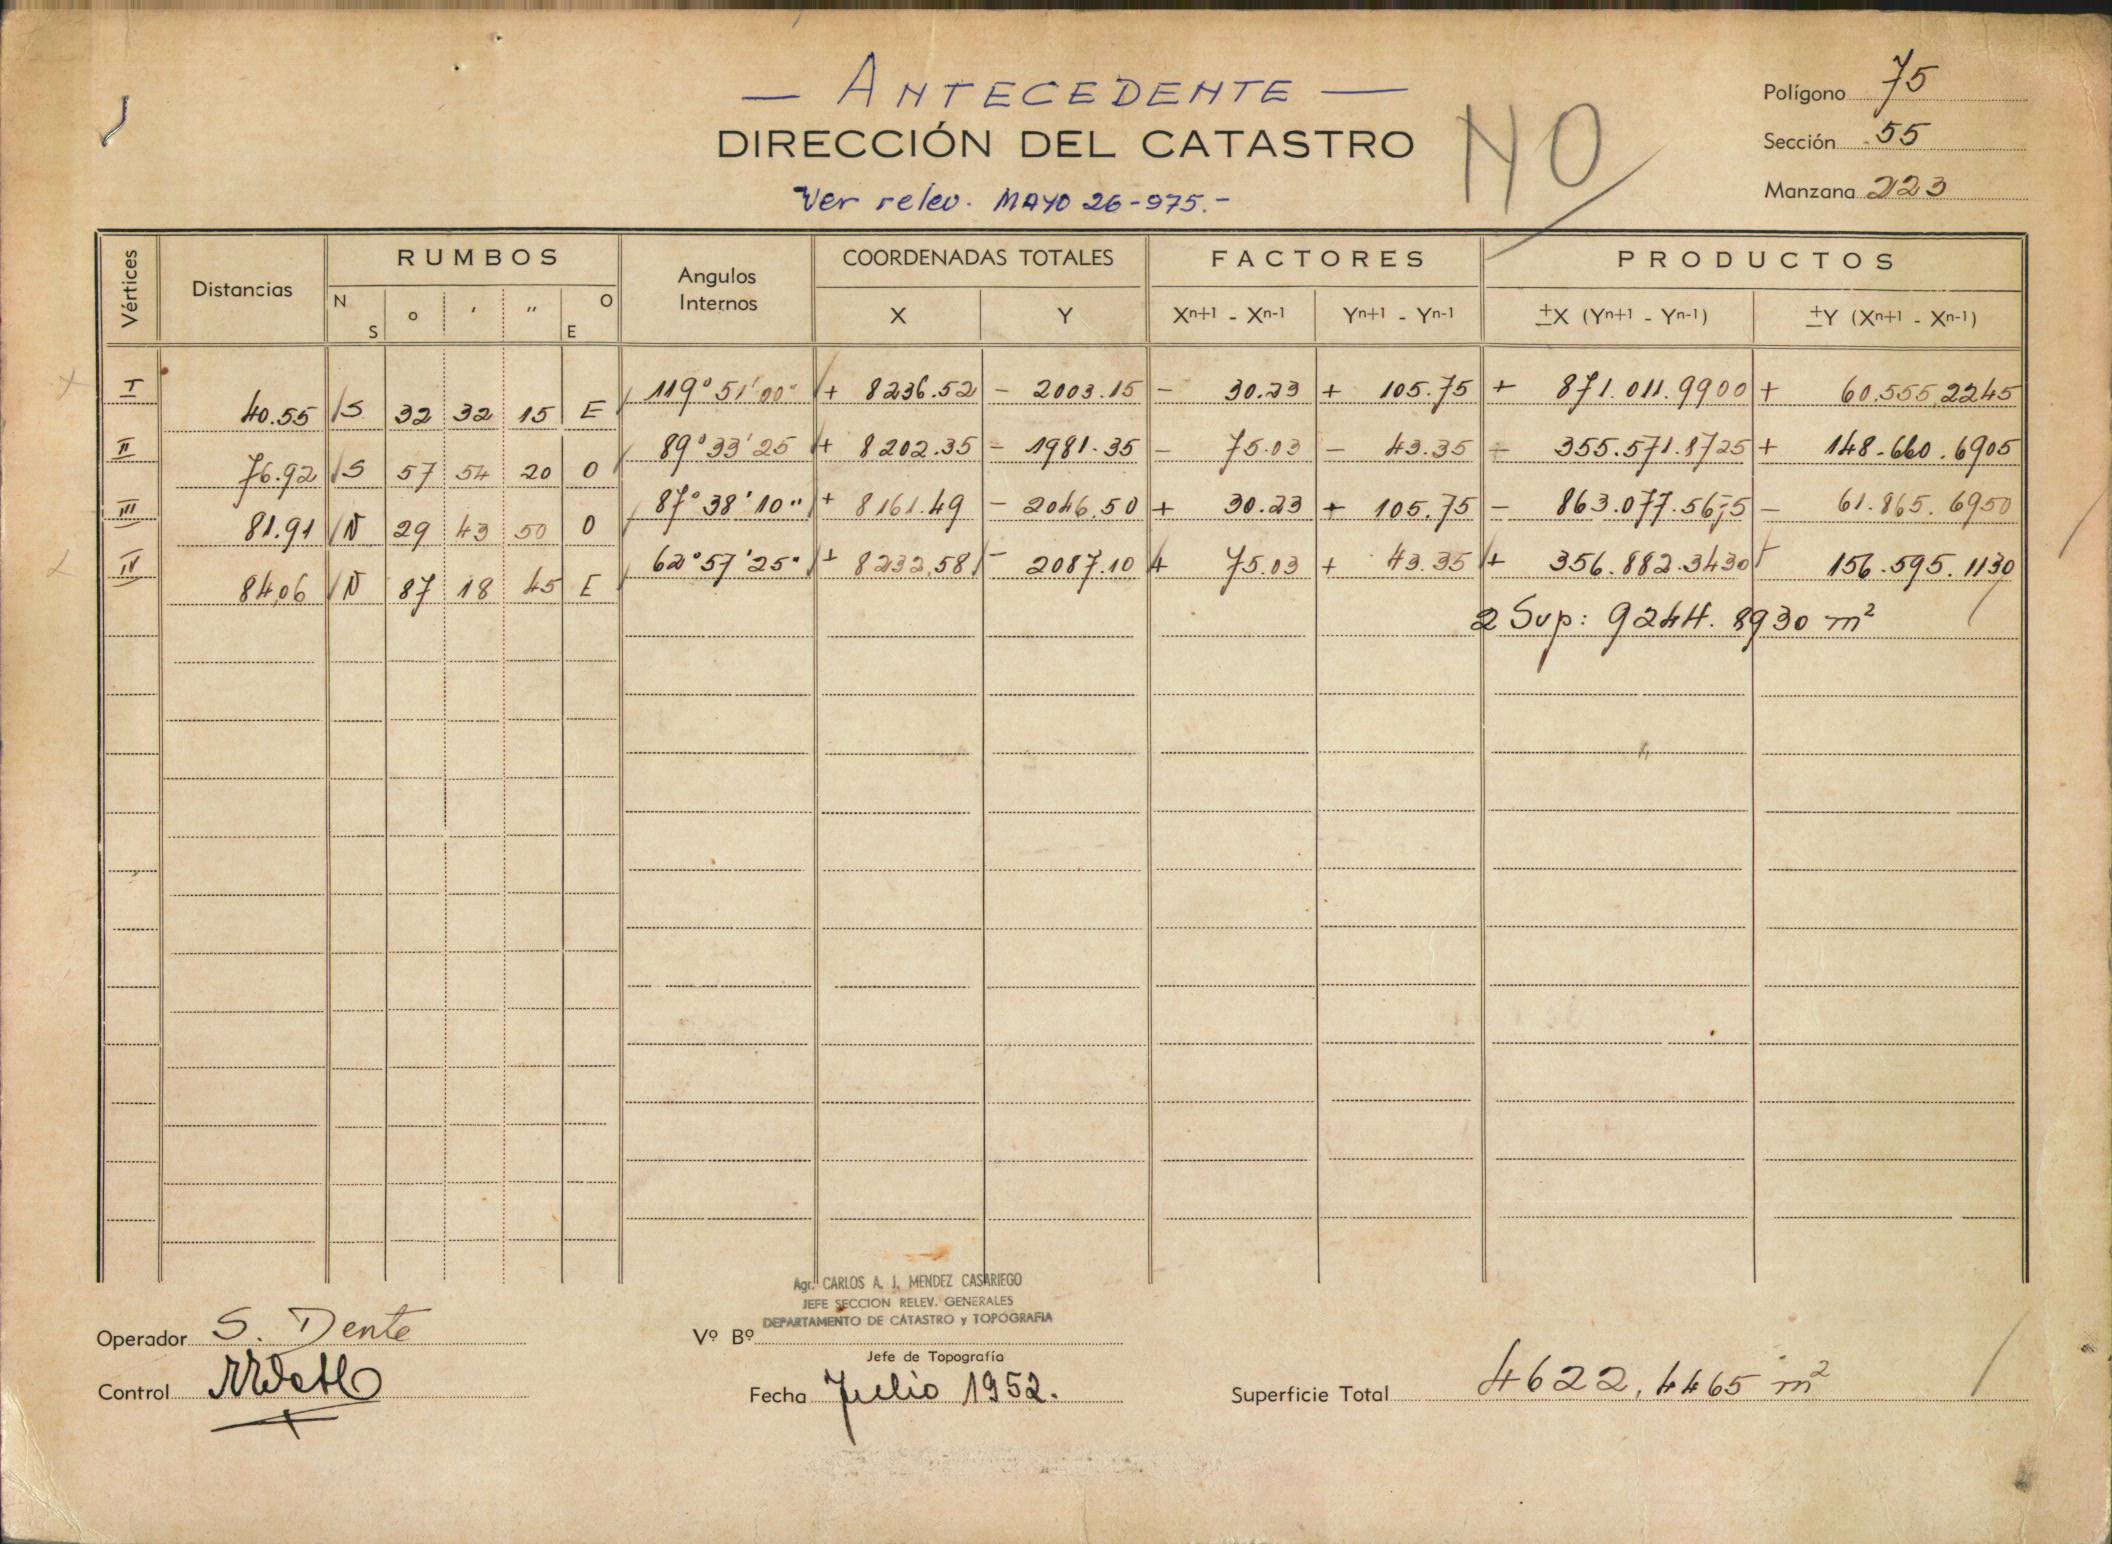 — ANTECEDENTE —
DIRECCIÓN DEL CATASTRO
NO
Ver relev. MAYO 26-975.-
Polígono 75
Sección 55
Manzana 223
Vértices Distancias RUMBOS Angulos Internos COORDENADAS TOTALES FACTORES PRODUCTOS
N S ° ' " O E X Y Xn+1 - Xn-1 Yn+1 - Yn-1 ±X (Yn+1 - Yn-1) ±Y (Xn+1 - Xn-1)
I 119° 51' 00" + 8236.52 - 2003.15 - 30.23 + 105.75 + 871.011.9900 + 60.555.2245
40.55 S 32 32 15 E
II 89° 33' 25 + 8202.35 - 1981.35 - 75.03 - 43.35 - 355.571.8725 + 148.660.6905
76.92 S 57 54 20 O
III 87° 38' 10" + 8161.49 - 2046.50 + 30.23 + 105.75 - 863.077.5675 - 61.865.6950
81.91 N 29 43 50 O
IV 62° 57' 25" + 8232,58 - 2087.10 + 75.03 + 43.35 + 356.882.3430 - 156.595.1130
84,06 N 87 18 45 E
2 Sup: 9244.8930 m²
Agr. CARLOS A. J. MENDEZ CASARIEGO
JEFE SECCION RELEV. GENERALES
DEPARTAMENTO DE CATASTRO y TOPOGRAFIA
Operador S. Dente
Vº Bº
Jefe de Topografía
Control
Fecha Julio 1952.
Superficie Total 4622,4465 m²